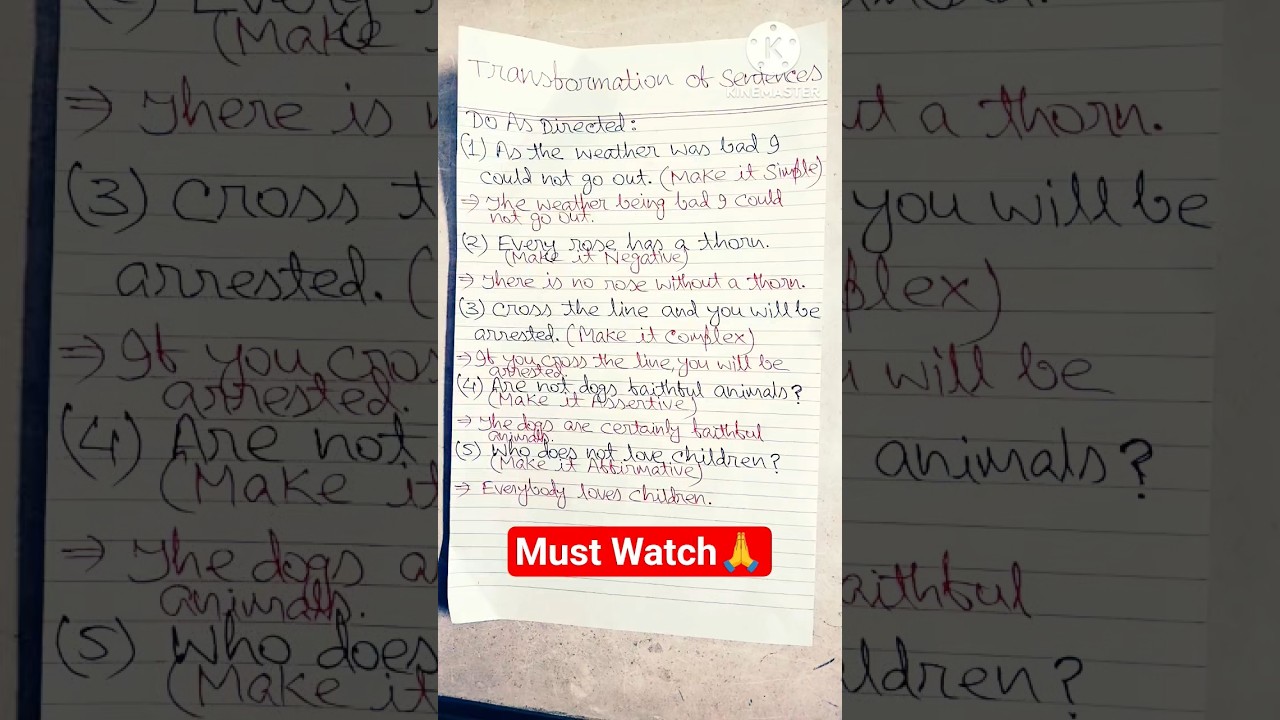 KINEMASTER
Transformation of Sentences
Do As Directed:
(1) As the weather was bad I
could not go out. (Make it Simple)
⇒ The weather being bad I could
not go out.
(2) Every rose has a thorn.
(Make it Negative)
⇒ There is no rose without a thorn.
(3) Cross the line and you will be
arrested. (Make it Complex)
⇒ If you cross the line, you will be
arrested.
(4) Are not dogs faithful animals?
(Make it Assertive)
⇒ The dogs are certainly faithful
animals.
(5) Who does not love children?
(Make it Affirmative)
⇒ Everybody loves children.
Must Watch🙏